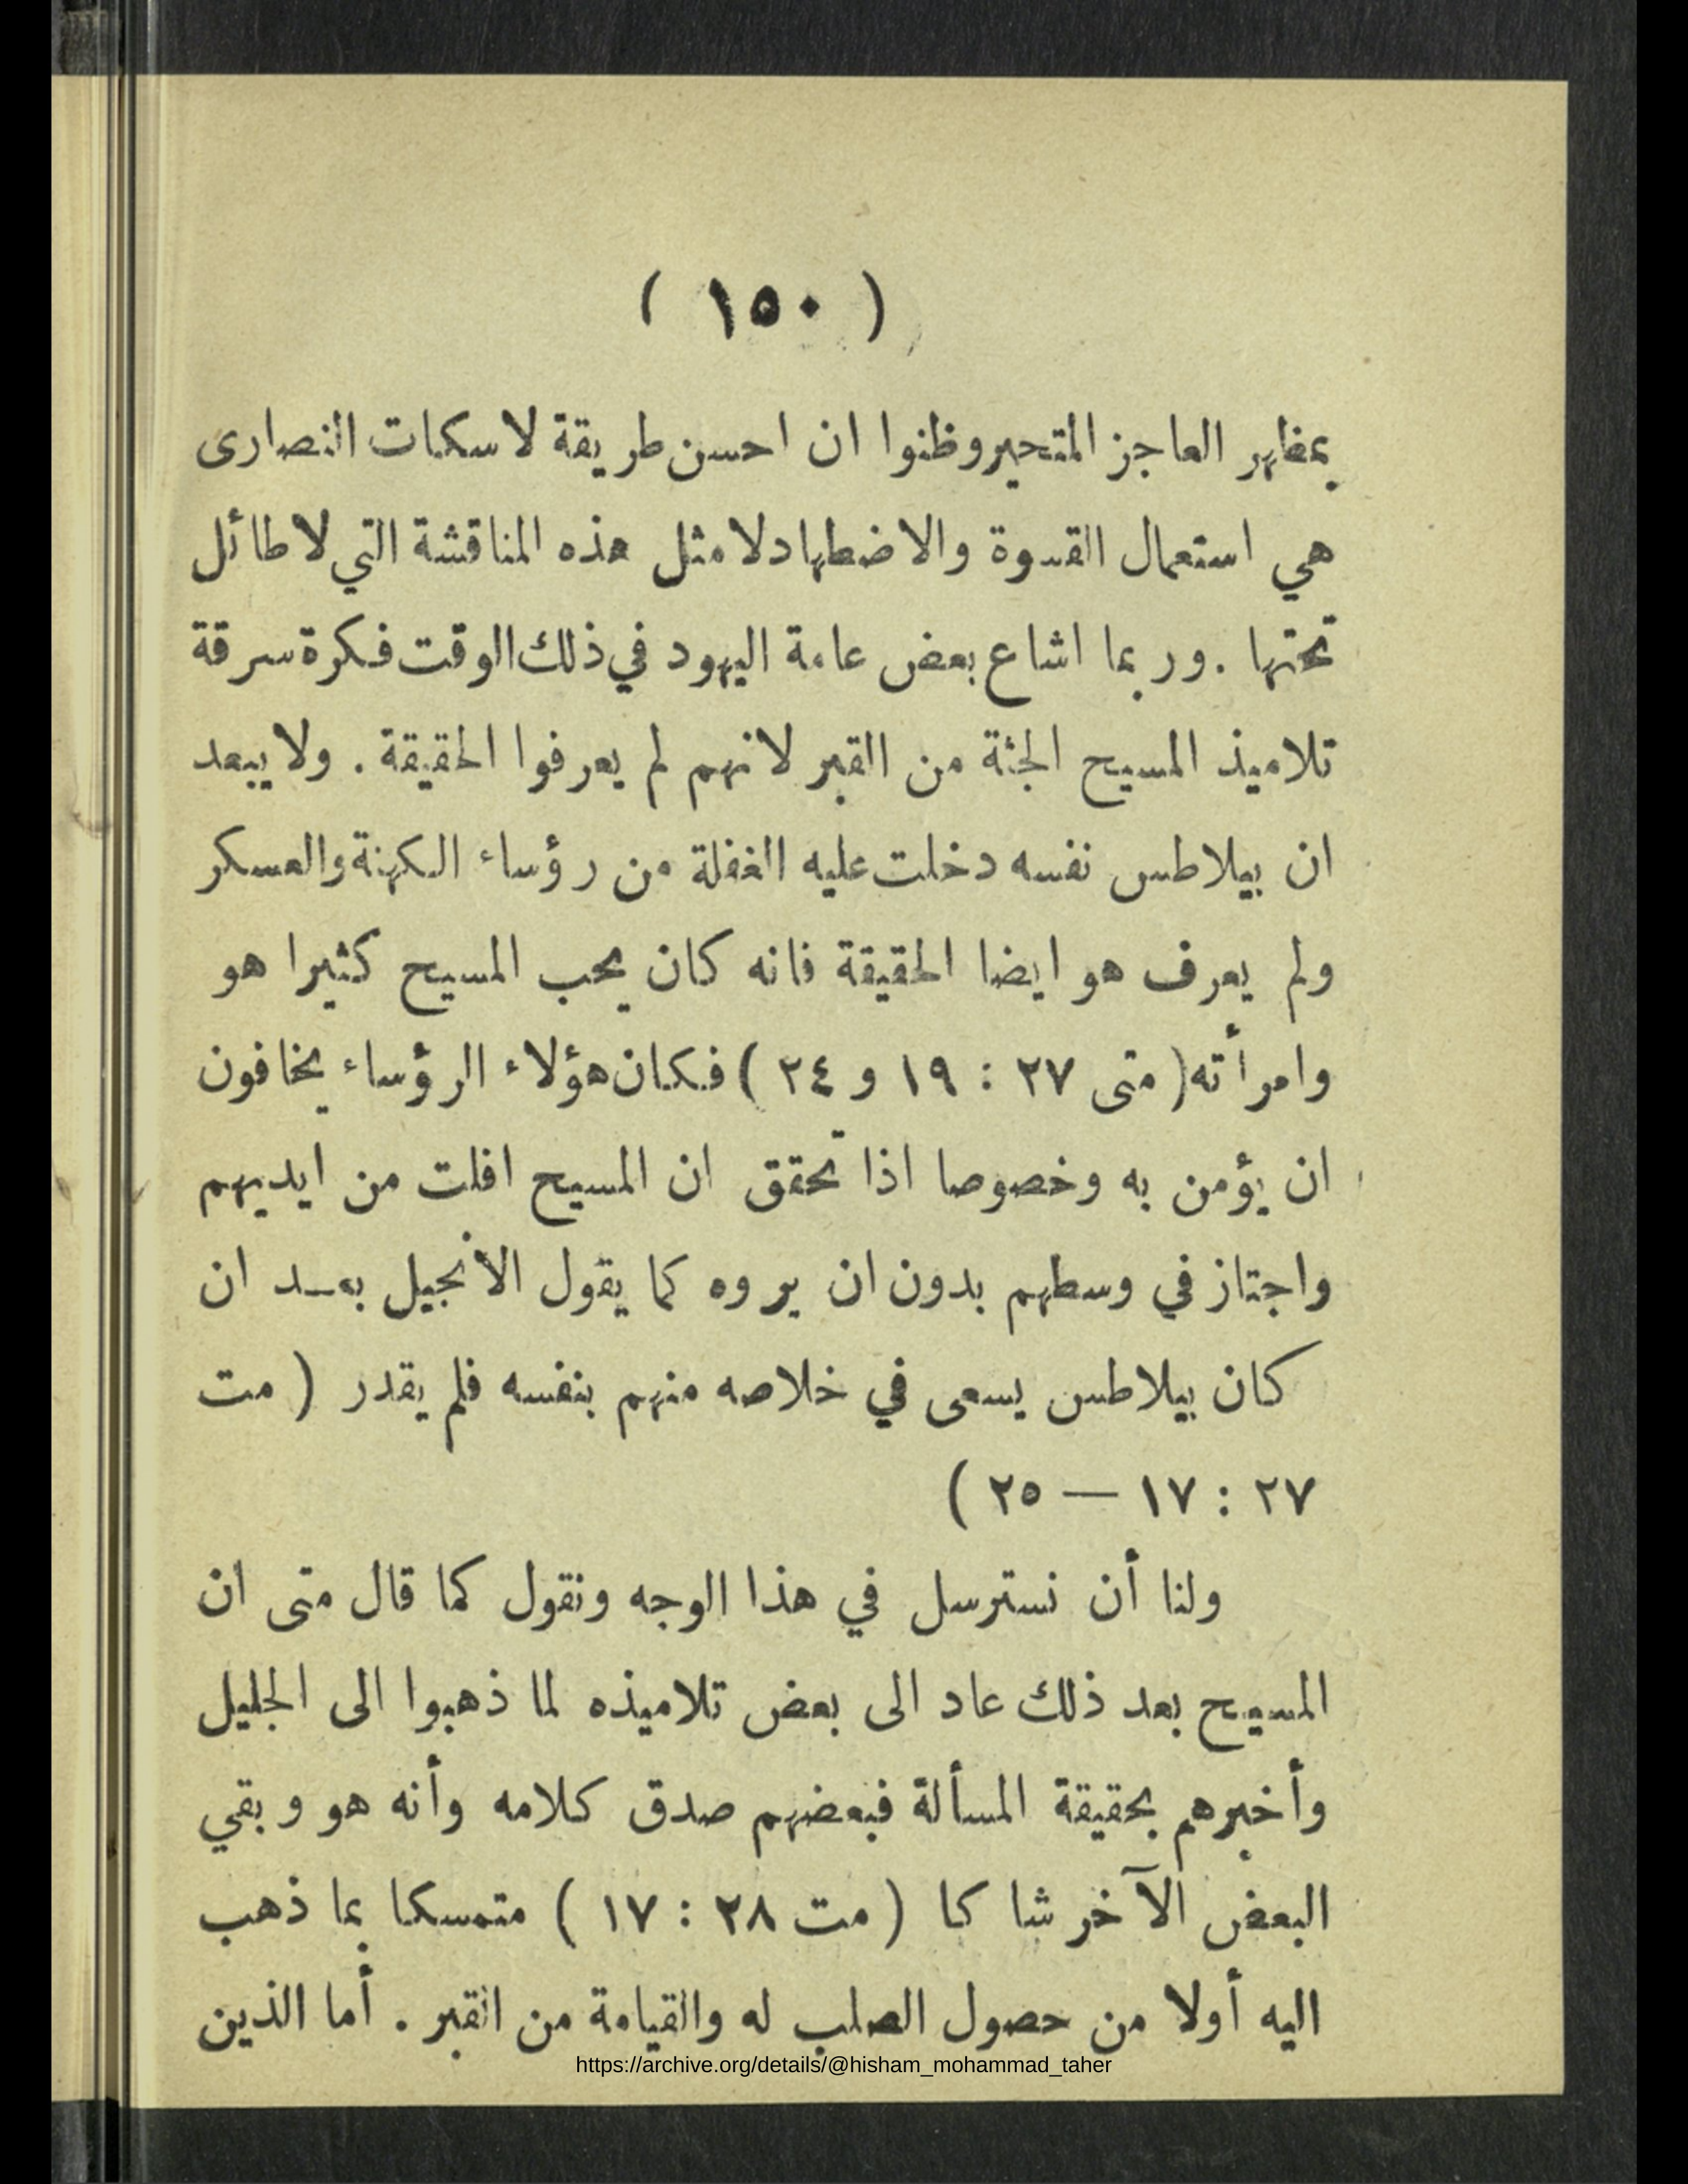 ( ١٥٠ )
بمظهر العاجز المتحير وظنوا ان احسن طريقة لاسكات النصارى
هي استعمال القسوة والاضطهاد لا مثل هذه المناقشة التي لا طائل
تحتها . وربما اشاع بعض عامة اليهود في ذلك الوقت فكرة سرقة
تلاميذ المسيح الجثة من القبر لانهم لم يعرفوا الحقيقة . ولا يبعد
ان بيلاطس نفسه دخلت عليه الغفلة من رؤساء الكهنة والعسكر
ولم يعرف هو ايضا الحقيقة فانه كان يحب المسيح كثيرا هو
وامرأته ( متى ٢٧ : ١٩ و ٢٤ ) فكان هؤلاء الرؤساء يخافون
ان يؤمن به وخصوصا اذا تحقق ان المسيح افلت من ايديهم
واجتاز في وسطهم بدون ان يروه كما يقول الانجيل بعـد ان
كان بيلاطس يسعى في خلاصه منهم بنفسه فلم يقدر ( مت
٢٧ : ١٧ — ٢٥ )
ولنا أن نسترسل في هذا الوجه ونقول كما قال متى ان
المسيح بعد ذلك عاد الى بعض تلاميذه لما ذهبوا الى الجليل
وأخبرهم بحقيقة المسألة فبعضهم صدق كلامه وأنه هو وبقي
البعض الآخر شاكا ( مت ٢٨ : ١٧ ) متمسكا بما ذهب
اليه أولا من حصول الصلب له والقيامة من القبر . أما الذين
https://archive.org/details/@hisham_mohammad_taher